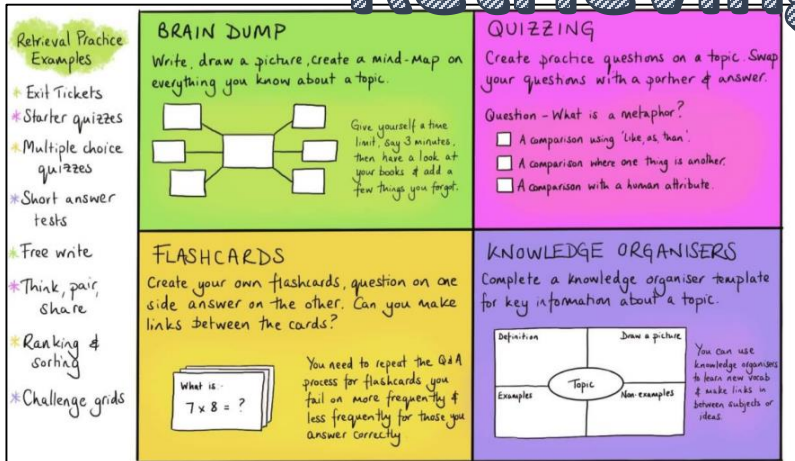 Retrieval Practice
Examples
* Exit Tickets
* Starter quizzes
* Multiple choice
quizzes
* Short answer
tests
* Free write
* Think, pair,
share
* Ranking &
sorting
* Challenge grids
BRAIN DUMP
Write, draw a picture, create a mind-map on
everything you know about a topic.
Give yourself a time
limit, say 3 minutes,
then have a look at
your books & add a
few things you forgot.
QUIZZING
Create practice questions on a topic. Swap
your questions with a partner & answer.
Question - What is a metaphor?
A comparison using 'like, as, than'.
A comparison where one thing is another.
A comparison with a human attribute.
FLASHCARDS
Create your own flashcards, question on one
side answer on the other. Can you make
links between the cards?
What is:-
7 x 8 = ?
You need to repeat the Q&A
process for flashcards you
fail on more frequently &
less frequently for those you
answer correctly
KNOWLEDGE ORGANISERS
Complete a knowledge organiser template
for key information about a topic.
Definition
Draw a picture
Topic
Examples
Non-examples
You can use
knowledge organisers
to learn new vocab
& make links in
between subjects or
ideas.